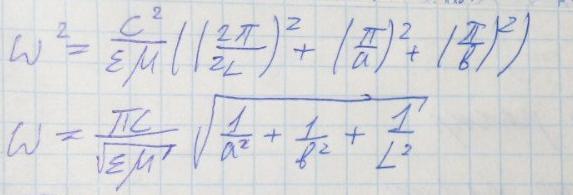 ω² = c²/εμ ((2π/2L)² + (π/a)² + (π/b)²)
ω = πc/√εμ √(1/a² + 1/b² + 1/L²)